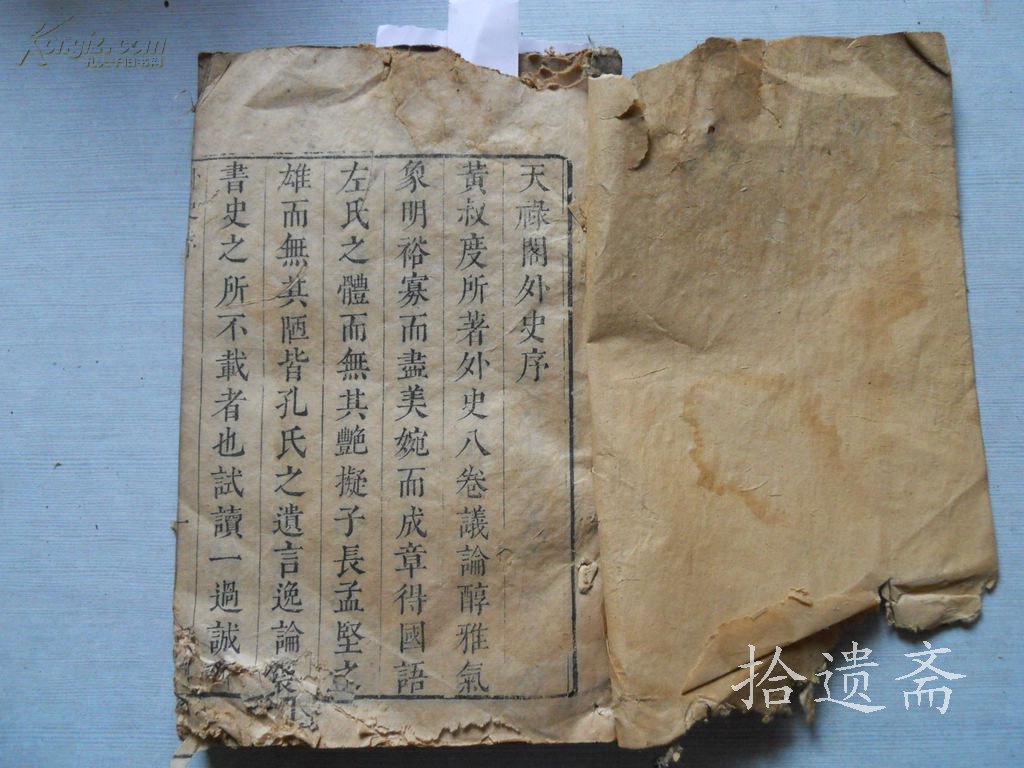 天祿閣外史序
黃叔度所著外史八卷議論醇雅氣
象明裕寡而盡美婉而成章得國語
左氏之體而無其艷擬子長孟堅之
雄而無其陋皆孔氏之遺言逸論
書史之所不載者也試讀一過誠
Kongfz.com
孔夫子旧书网
拾遗斋